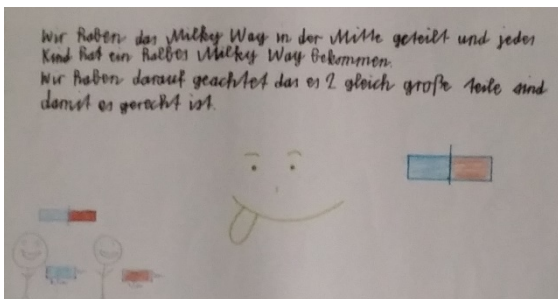 Wir haben das Milky Way in der Mitte geteilt und jedes
Kind hat ein halbes Milky Way bekommen.
Wir haben darauf geachtet das es 2 gleich große teile sind
damit es gerecht ist.